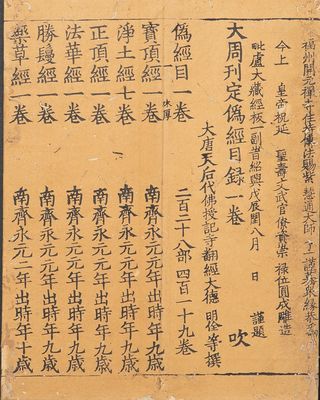 福州開元禪寺住持傳法賜紫慧通大師了一謹募衆縁恭爲
今上皇帝祝延聖壽文武官僚資崇祿位圓成雕造
毗盧大藏經板一副旹紹興戊辰閏八月日謹題
大周刊定偽經目録一卷 吹
大唐天后代佛授記寺翻經大德明佺等撰
偽經目一卷 二百二十八部四百一十九卷
寶頂經一卷 南齊永元元年出時年九歳
淨土經七卷 南齊永元元年出時年九歳
正頂經一卷 南齊永元元年出時年九歳
法華經一卷 南齊永元元年出時年九歳
勝鬘經一卷 南齊永元元年出時年九歳
藥草經一卷 南齊永元二年出時年十歳